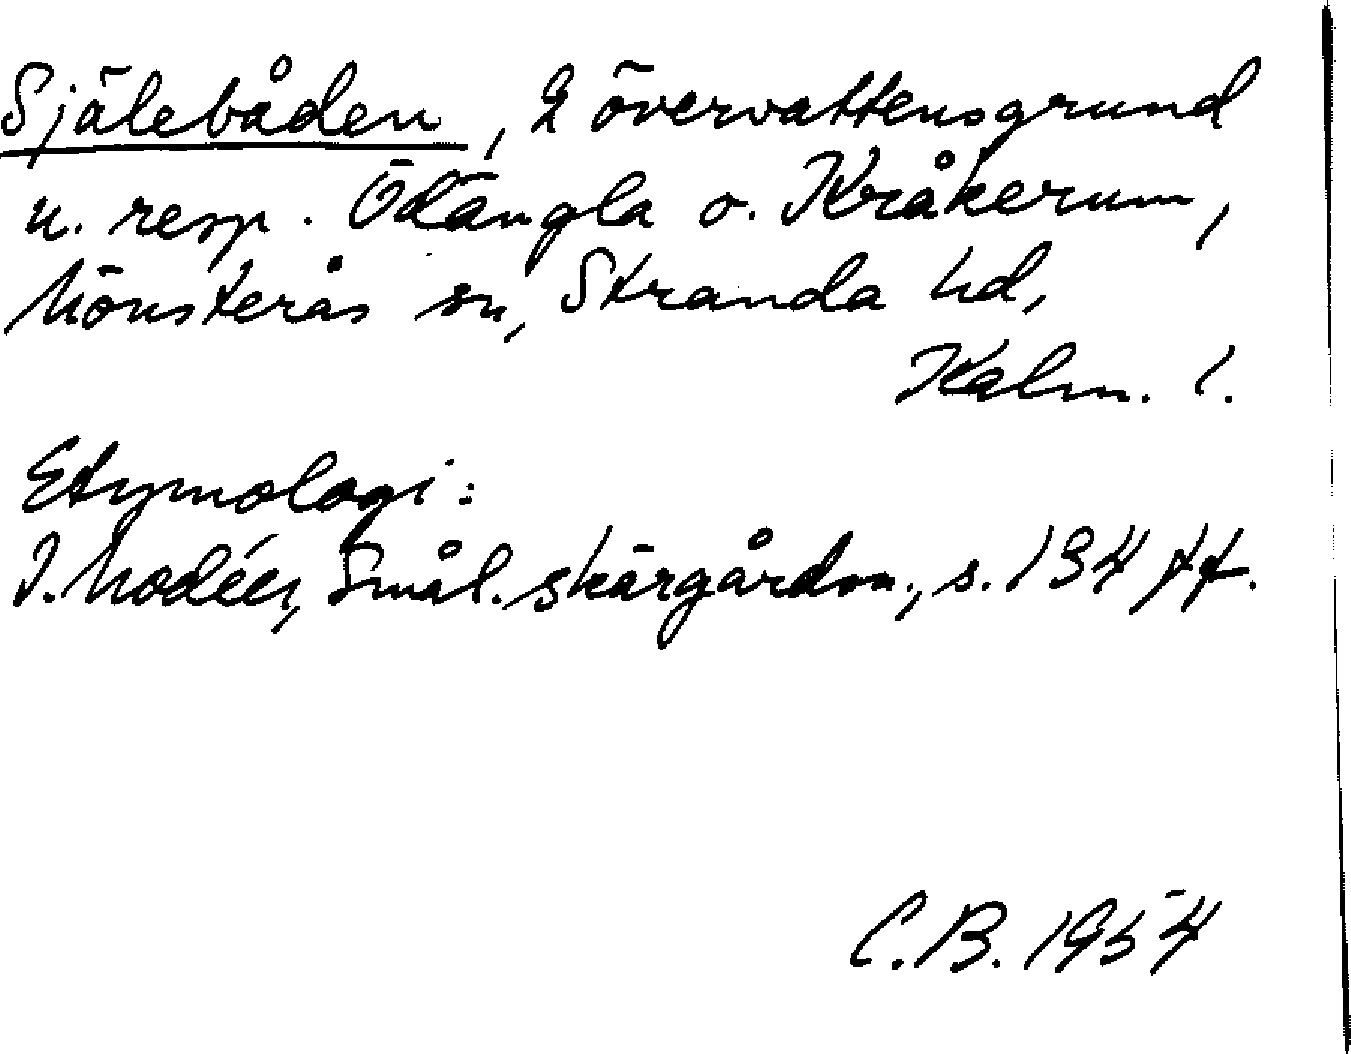 Själebåden, 2 övervattensgrund
u. resp. Ödängla o. Kråkerum,
Mönsterås sn, Stranda hd,
Kalm. l.
Etymologi:
I. Modéer, Smål. skärgårdsn., s. 134 ff.
C.B. 1954